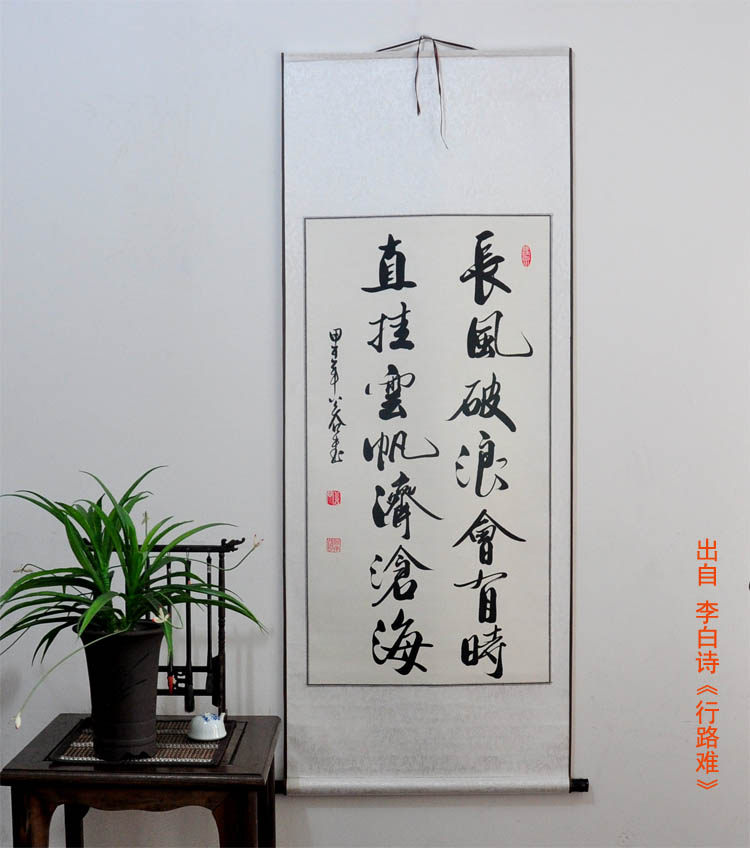 長風破浪會有時
直挂雲帆濟滄海
甲午年
出自 李白诗《行路难》